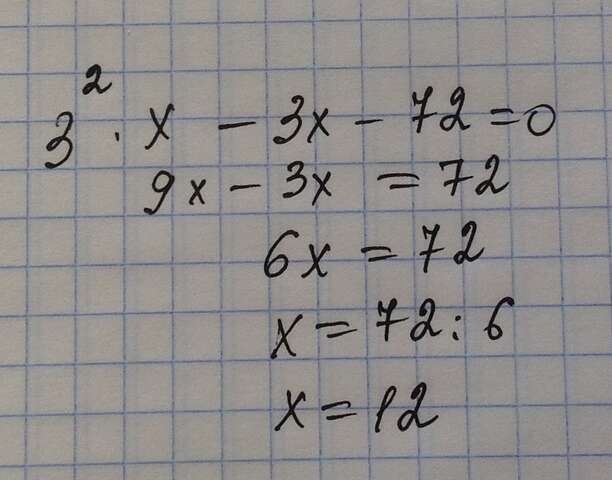 3² · x − 3x − 72 = 0
9x − 3x = 72
6x = 72
x = 72 : 6
x = 12